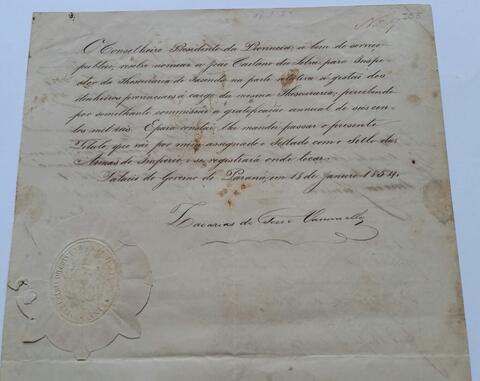 O Conselheiro Presidente da Provincia, a bem do serviço
publico, resolve nomear a João Caetano da Silva, para Inspe-
ctor da Thesouraria de Fazenda na parte relativa á gestão dos
dinheiros provinciaes a cargo da mesma Thesouraria, percebendo
por semelhante commissão a gratificação annual de seis cen-
tos mil reis. E para constar lhe mandei passar o presente
Titulo, que vai por mim assignado e Sellado com o Sello das
Armas do Imperio, e se registrará onde tocar.
Palacio do Governo do Paraná, em 18 de janeiro 1854.
Zacarias de